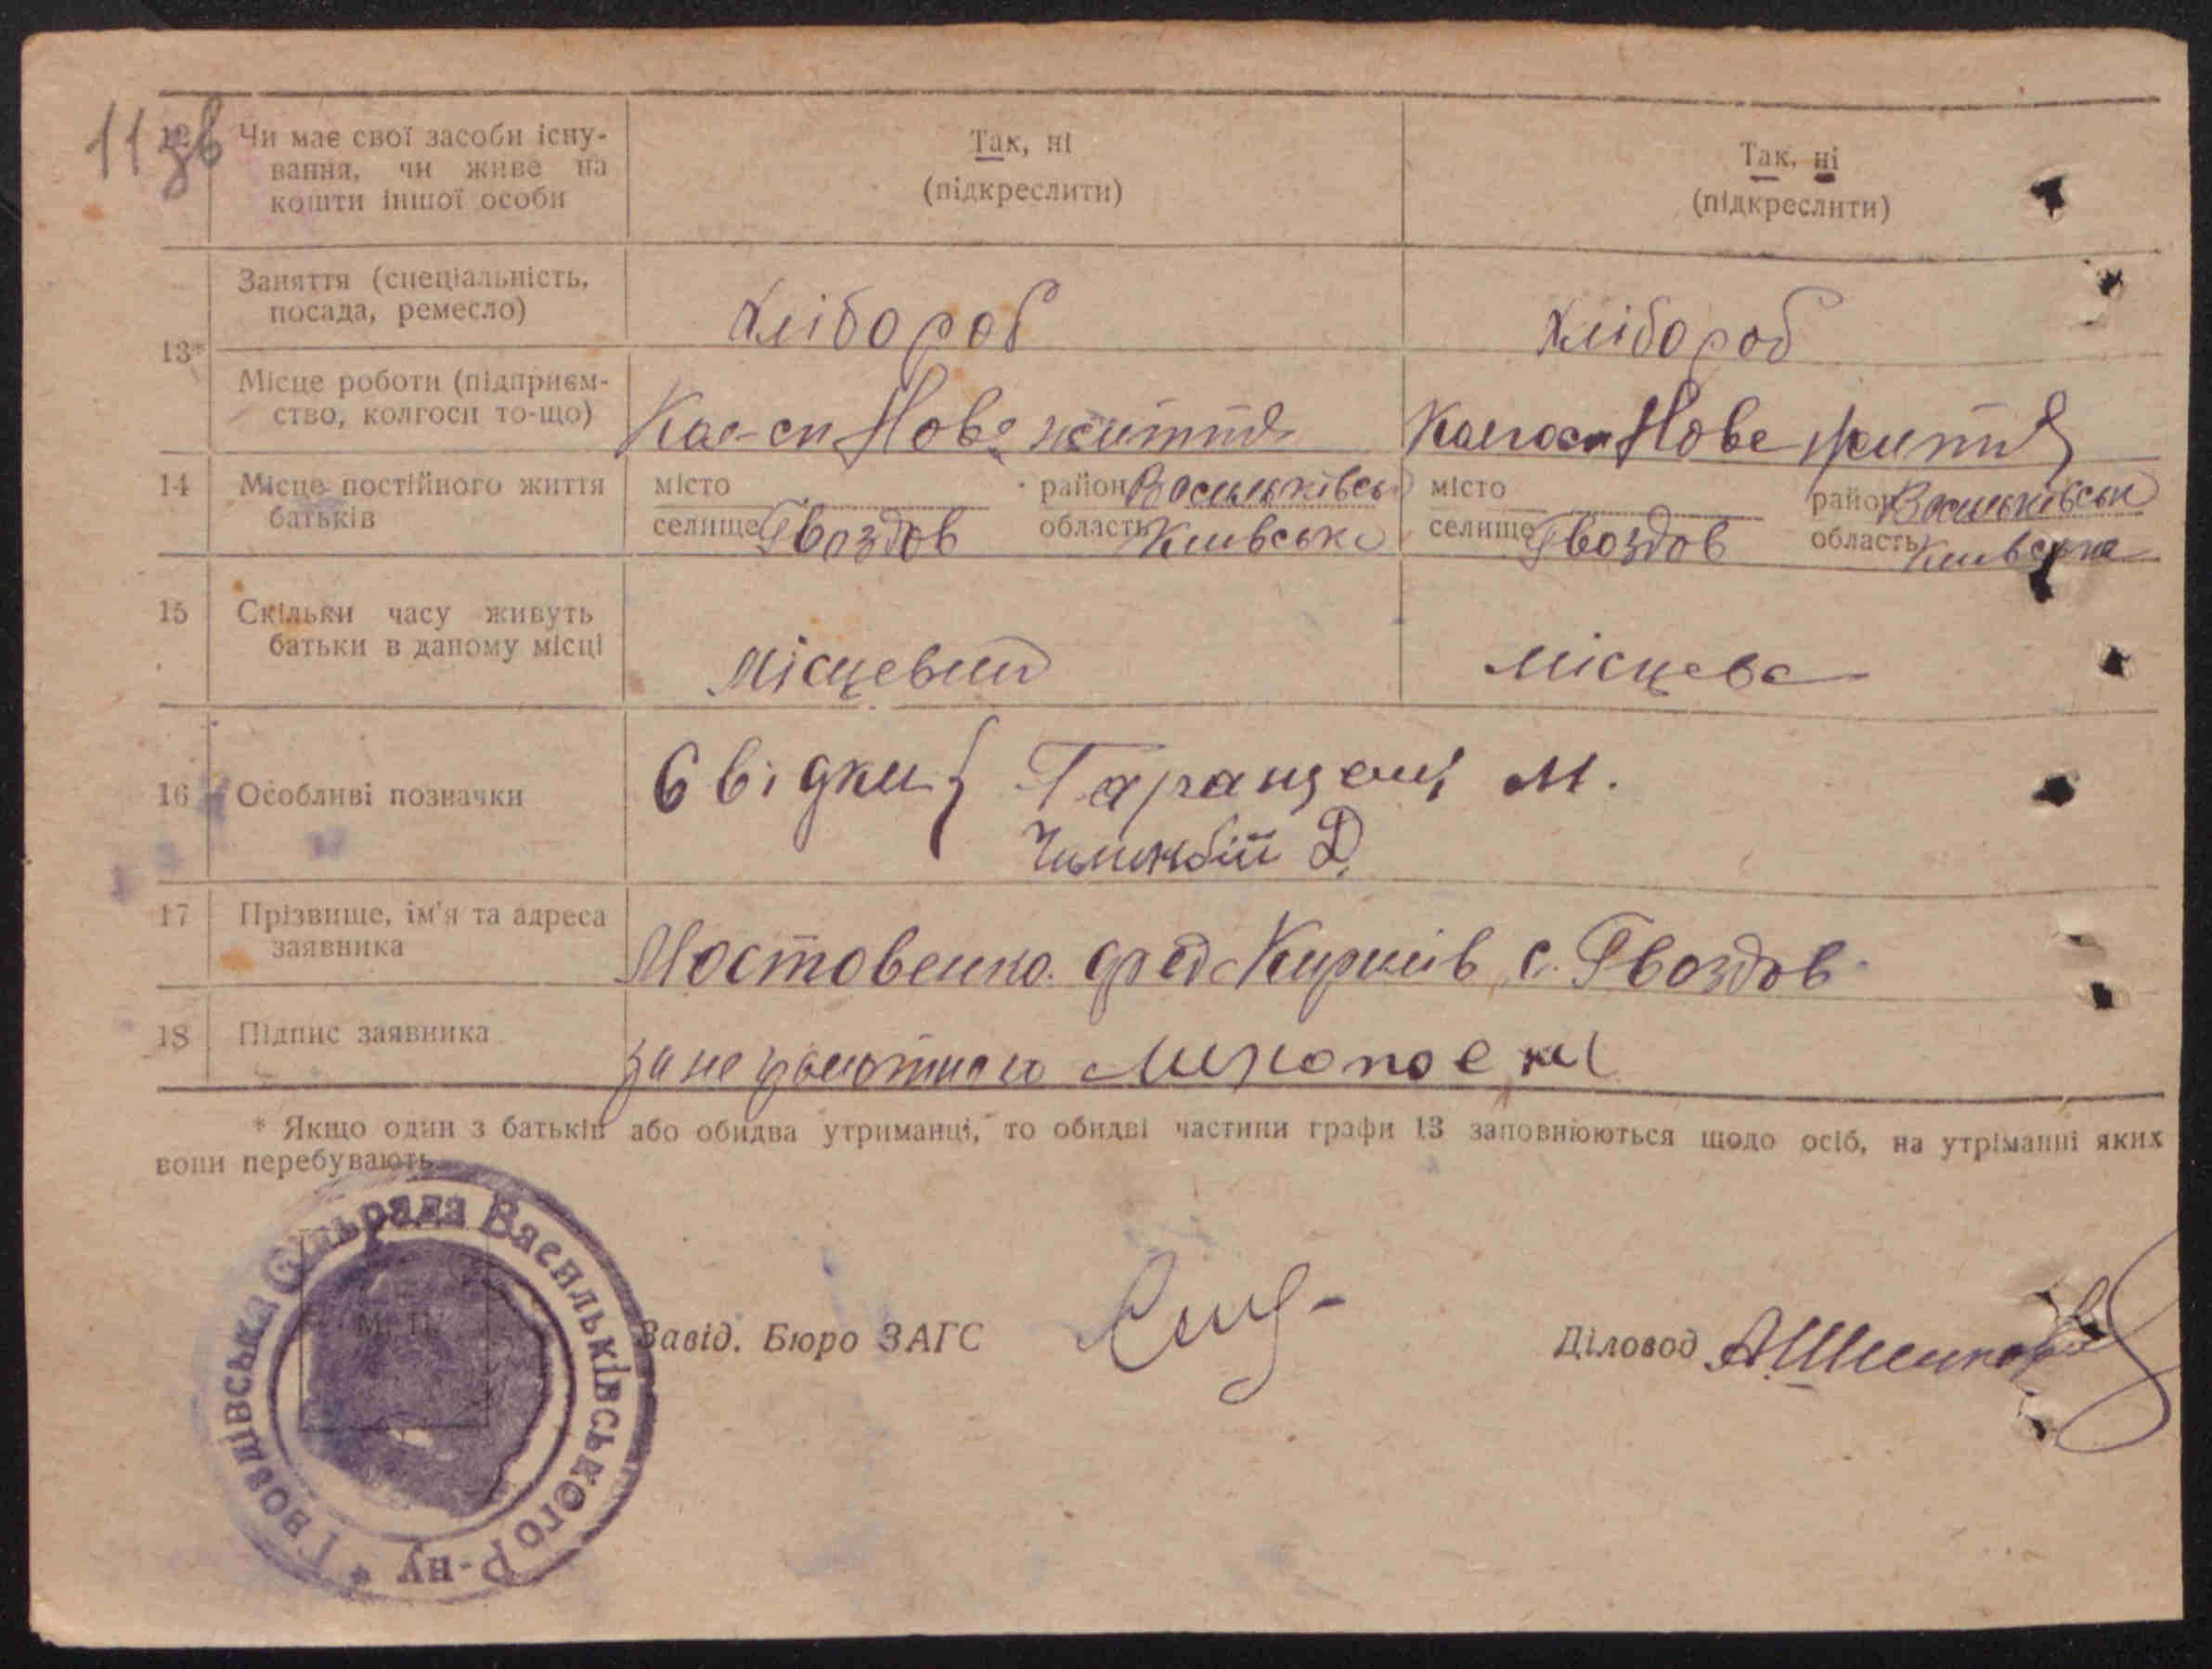 11 зв
12 Чи має свої засоби існу-
вання, чи живе на
кошти іншої особи
Так, ні
(підкреслити)
Так, ні
(підкреслити)
13*
Заняття (спеціальність,
посада, ремесло)
Хлібороб
Хлібороб
Місце роботи (підприєм-
ство, колгосп то-що)
Кол-сп Нове життя
Колгосп Нове життя
14 Місце постійного життя
батьків
місто
район Васильківськ
селище Гвоздов
область Київська
місто
район Васильківськ
селище Гвоздов
область Київська
15 Скільки часу живуть
батьки в даному місці
Місцевий
Місцева
16 Особливі позначки
Свідки { М.
Д.
17 Прізвище, ім'я та адреса
заявника
Мостовенко с. Гвоздов
18 Підпис заявника
за неграмотного
* Якщо один з батьків або обидва утриманці, то обидві частини графи 13 заповнюються щодо осіб, на утріманні яких
вони перебувають.
Гвоздівська Сільрада Васильківського Р-ну *
М. П.
Завід. Бюро ЗАГС
Діловод